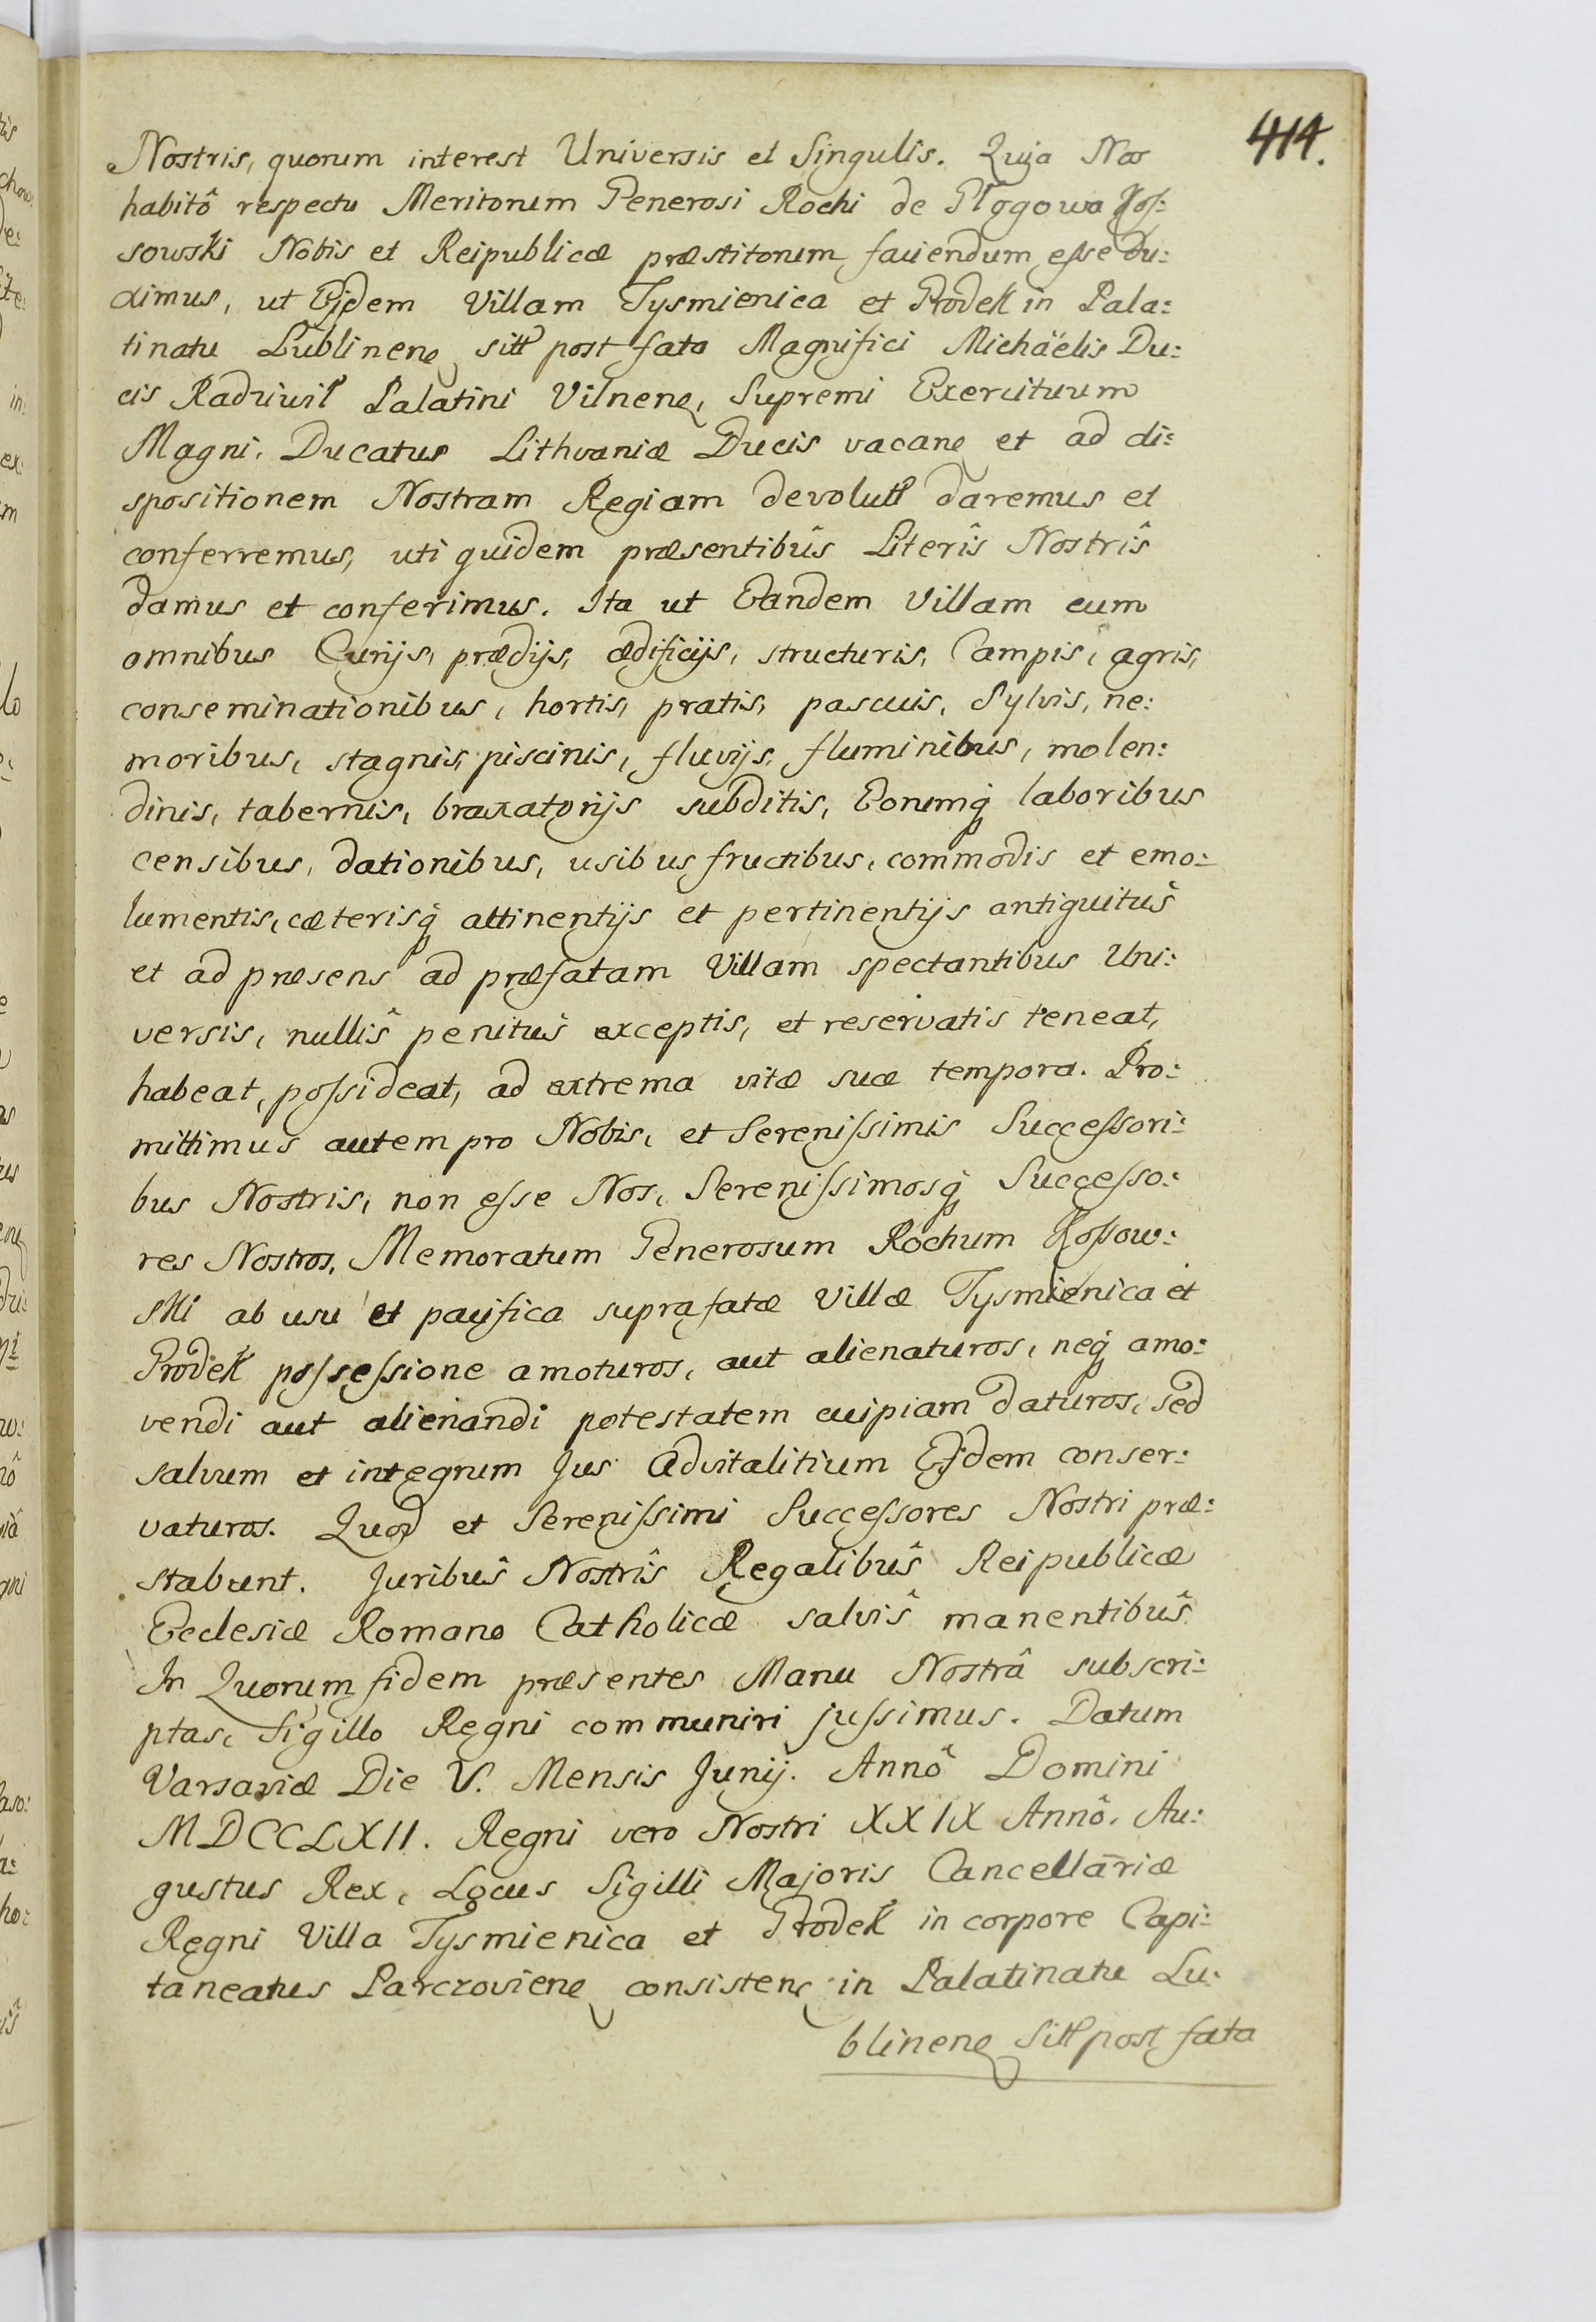 414.
Nostris, quorum interest Universis et Singulis. Quja Nos
habitô respectu Meritorum Generosi Rochi de Głogowa Kos:
sowski Nobis et Reipublicæ præstitorum faciendum esse Du:
ximus, ut Ejdem Villam Tysmienica et Grodek in Pala:
tinatu Lublinen sitt post fata Magnifici Michäelis Du:
cis Radziwił Palatini Vilnen, Supremi Exercituum
Magni. Ducatus Lithvaniæ Ducis vacan et ad di:
spositionem Nostram Regiam devolutt daremus et
conferremus, uti quidem præsentibûs Literîs Nostrîs
damus et conferimus. Ita ut Eandem Villam cum
omnibus Curijs, prædijs, ædificijs, structuris, Campis, agris,
conseminationibus, hortis, pratis, pascuis, Sylvis, ne:
moribus, stagnis, piscinis, fluvijs, fluminibus, molen:
dinis, tabernis, braxatorijs subditis, Eorumq laboribus
censibus, dationibus, usibus fructibus, commodis et emo:
lumentis, cæterisq attinentijs et pertinentijs antiquitûs
et ad præsens ad præfatam Villam spectantibus Uni:
versis, nullîs penitûs exceptis, et reservatis teneat,
habeat, possideat, ad extrema vitæ suæ tempora. Pro:
mittimus autem pro Nobis, et Serenissimis Successori:
bus Nostris, non esse Nos, Serenissimosq Successo:
res Nostros, Memoratum Generosum Rochum Kossow:
ski ab usu et pacifica suprafatæ Villæ Tysmienica et
Grodek possessione amoturos, aut alienaturos, neq amo:
vendi aut alienandi potestatem cuipiam daturos, sed
salvum et integrum Jus Advitalitium Ejdem conser:
vaturos. Quod et Serenissimi Successores Nostri præ:
stabunt. Juribûs Nostrîs Regalibûs Reipublicæ
Ecclesiæ Romano Catholicæ salvîs manentibûs
In Quorum fidem præsentes Manu Nostrâ subscri:
ptas, Sigillo Regni communiri jussimus. Datum
Varsaviæ Die V. Mensis Junij. Annô Domini
MDCCLXII. Regni vero Nostri XXIX Annô. Au:
gustus Rex, Locus Sigilli Majoris Cancellariæ
Regni Villa Tysmienica et Grodek in corpore Capi:
taneatus Parczovien consisten in Palatinatu Lu:
blinen Sitt post fata